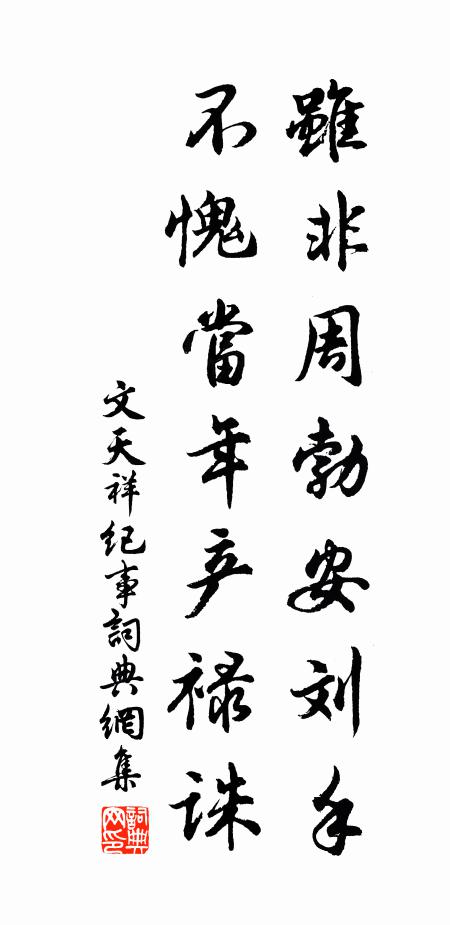 雖非周勃安刘手
不愧當年产禄誅
文天祥纪事詞典網集
詞典網印